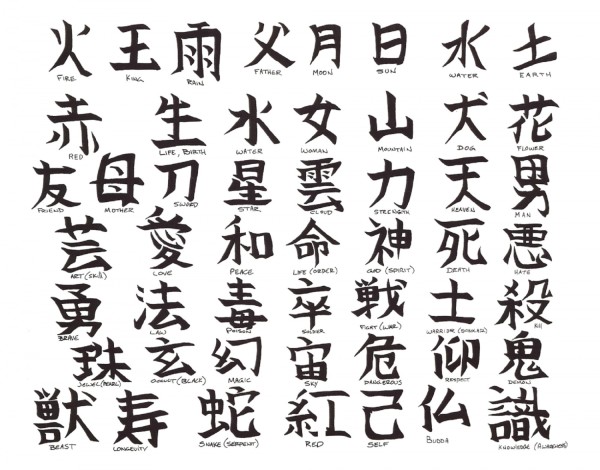 火 王 雨 父 月 日 水 土
FIRE KING RAIN FATHER MOON SUN WATER EARTH
赤 生 水 女 山 犬 花
RED LIFE, BIRTH WATER WOMAN MOUNTAIN DOG FLOWER
友 母 刀 星 雲 力 天 男
FRIEND MOTHER SWORD STAR CLOUD STRENGTH HEAVEN MAN
芸 愛 和 命 神 死 悪
ART (SKILL) LOVE PEACE LIFE (ORDER) GOD (SPIRIT) DEATH HATE
勇 法 毒 卒 戦 士 殺
BRAVE LAW POISON SOLDIER FIGHT (WAR) WARRIOR KILL
珠 玄 幻 宙 危 仰 鬼
JEWEL (PEARL) OCCULT (BLACK) MAGIC SKY DANGEROUS RESPECT DEMON
獣 寿 蛇 紅 己 仏 識
BEAST LONGEVITY SNAKE (SERPENT) RED SELF BUDDA KNOWLEDGE (AWARENESS)